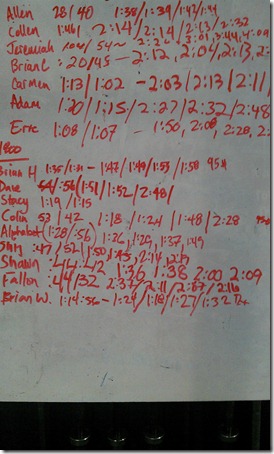 Allen 28/40 1:38/1:39/1:47/1:44
Collen 1:46 2:14/2:14/2:13/2:32
Jeremiah 54 3:01, 3:44, 4:09
Brian C :20/45 - 2:12, 2:04, 2:13, 2:
Carmen 1:13/1:02 - 2:03/2:13/2:11/
Adam 1:20/1:15/2:27/2:32/2:48
Eric 1:08/1:07 - 1:50, 2:08, 2:28, 2:
1800
Brian H. 1:35/1:31 - 1:47/1:49/1:53/1:58 95#
Dave :56 (1:51/1:52/2:48/
Stacy 1:19/1:15
Colin 53/42 1:18/1:24/1:48/2:28
Alphabet (1:28/:56) 1:36, 1:29, 1:37, 1:49
:47/52 (1:50, 1:45, 2:14, 2:19
Shawn :44:42 1:36 1:38 2:00 2:09
Fallon :44/32 2:37/2:11/2:07/2:16
Brian W. 1:14:56 - 1:24/1:18/1:27/1:32